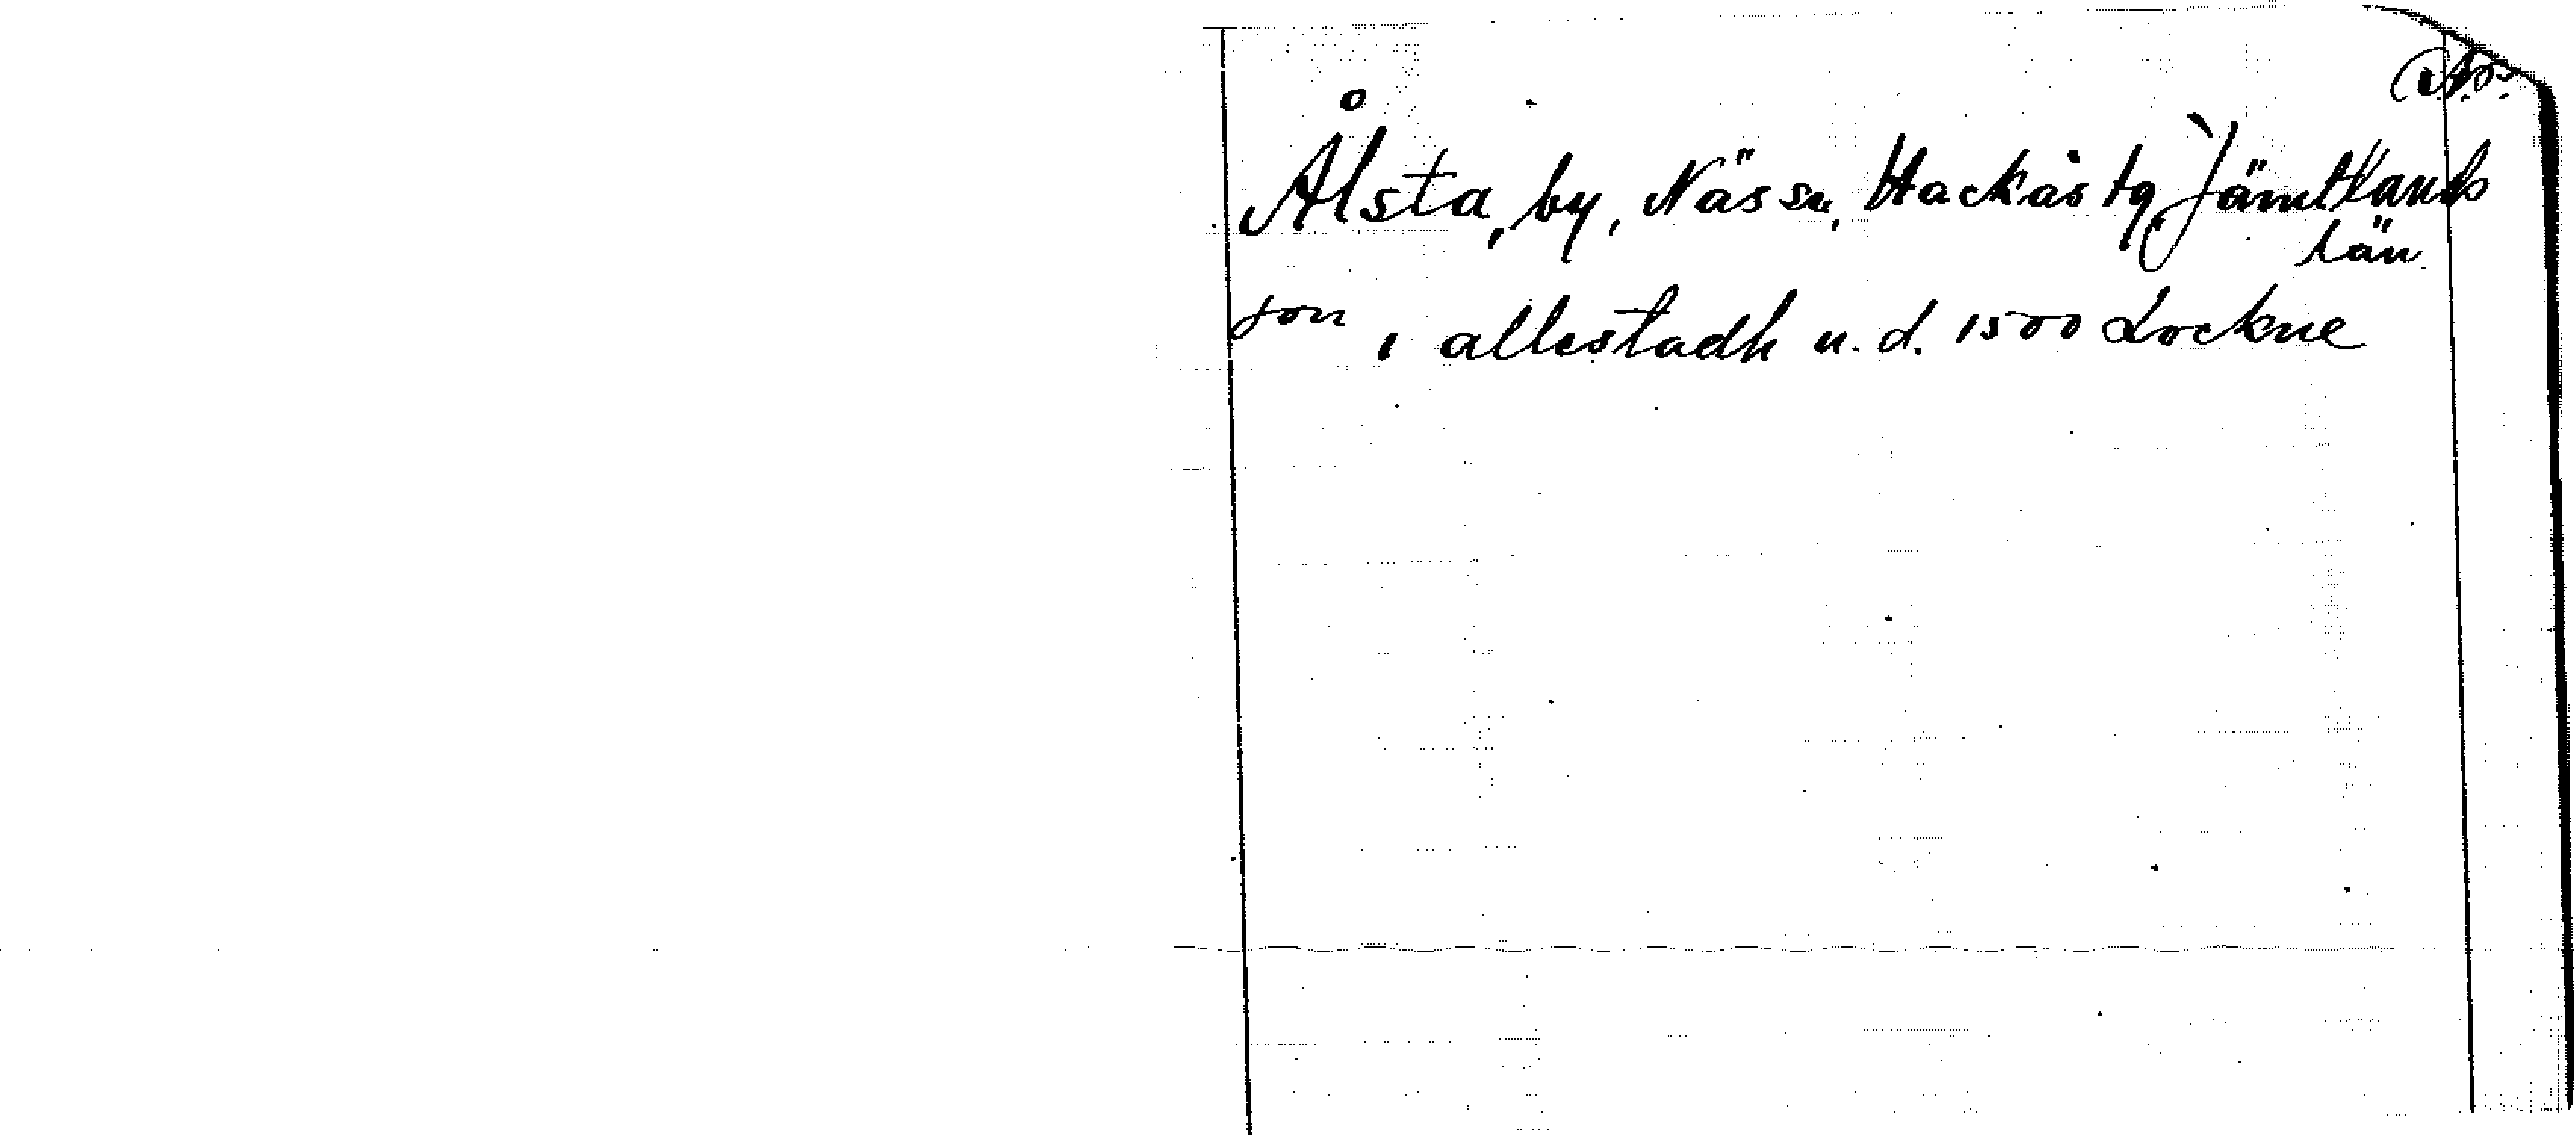 Ålsta, by, Näs sn, Hackås tg Jämtlands
län.
jon i allestadh u.d. 1500 Lockne